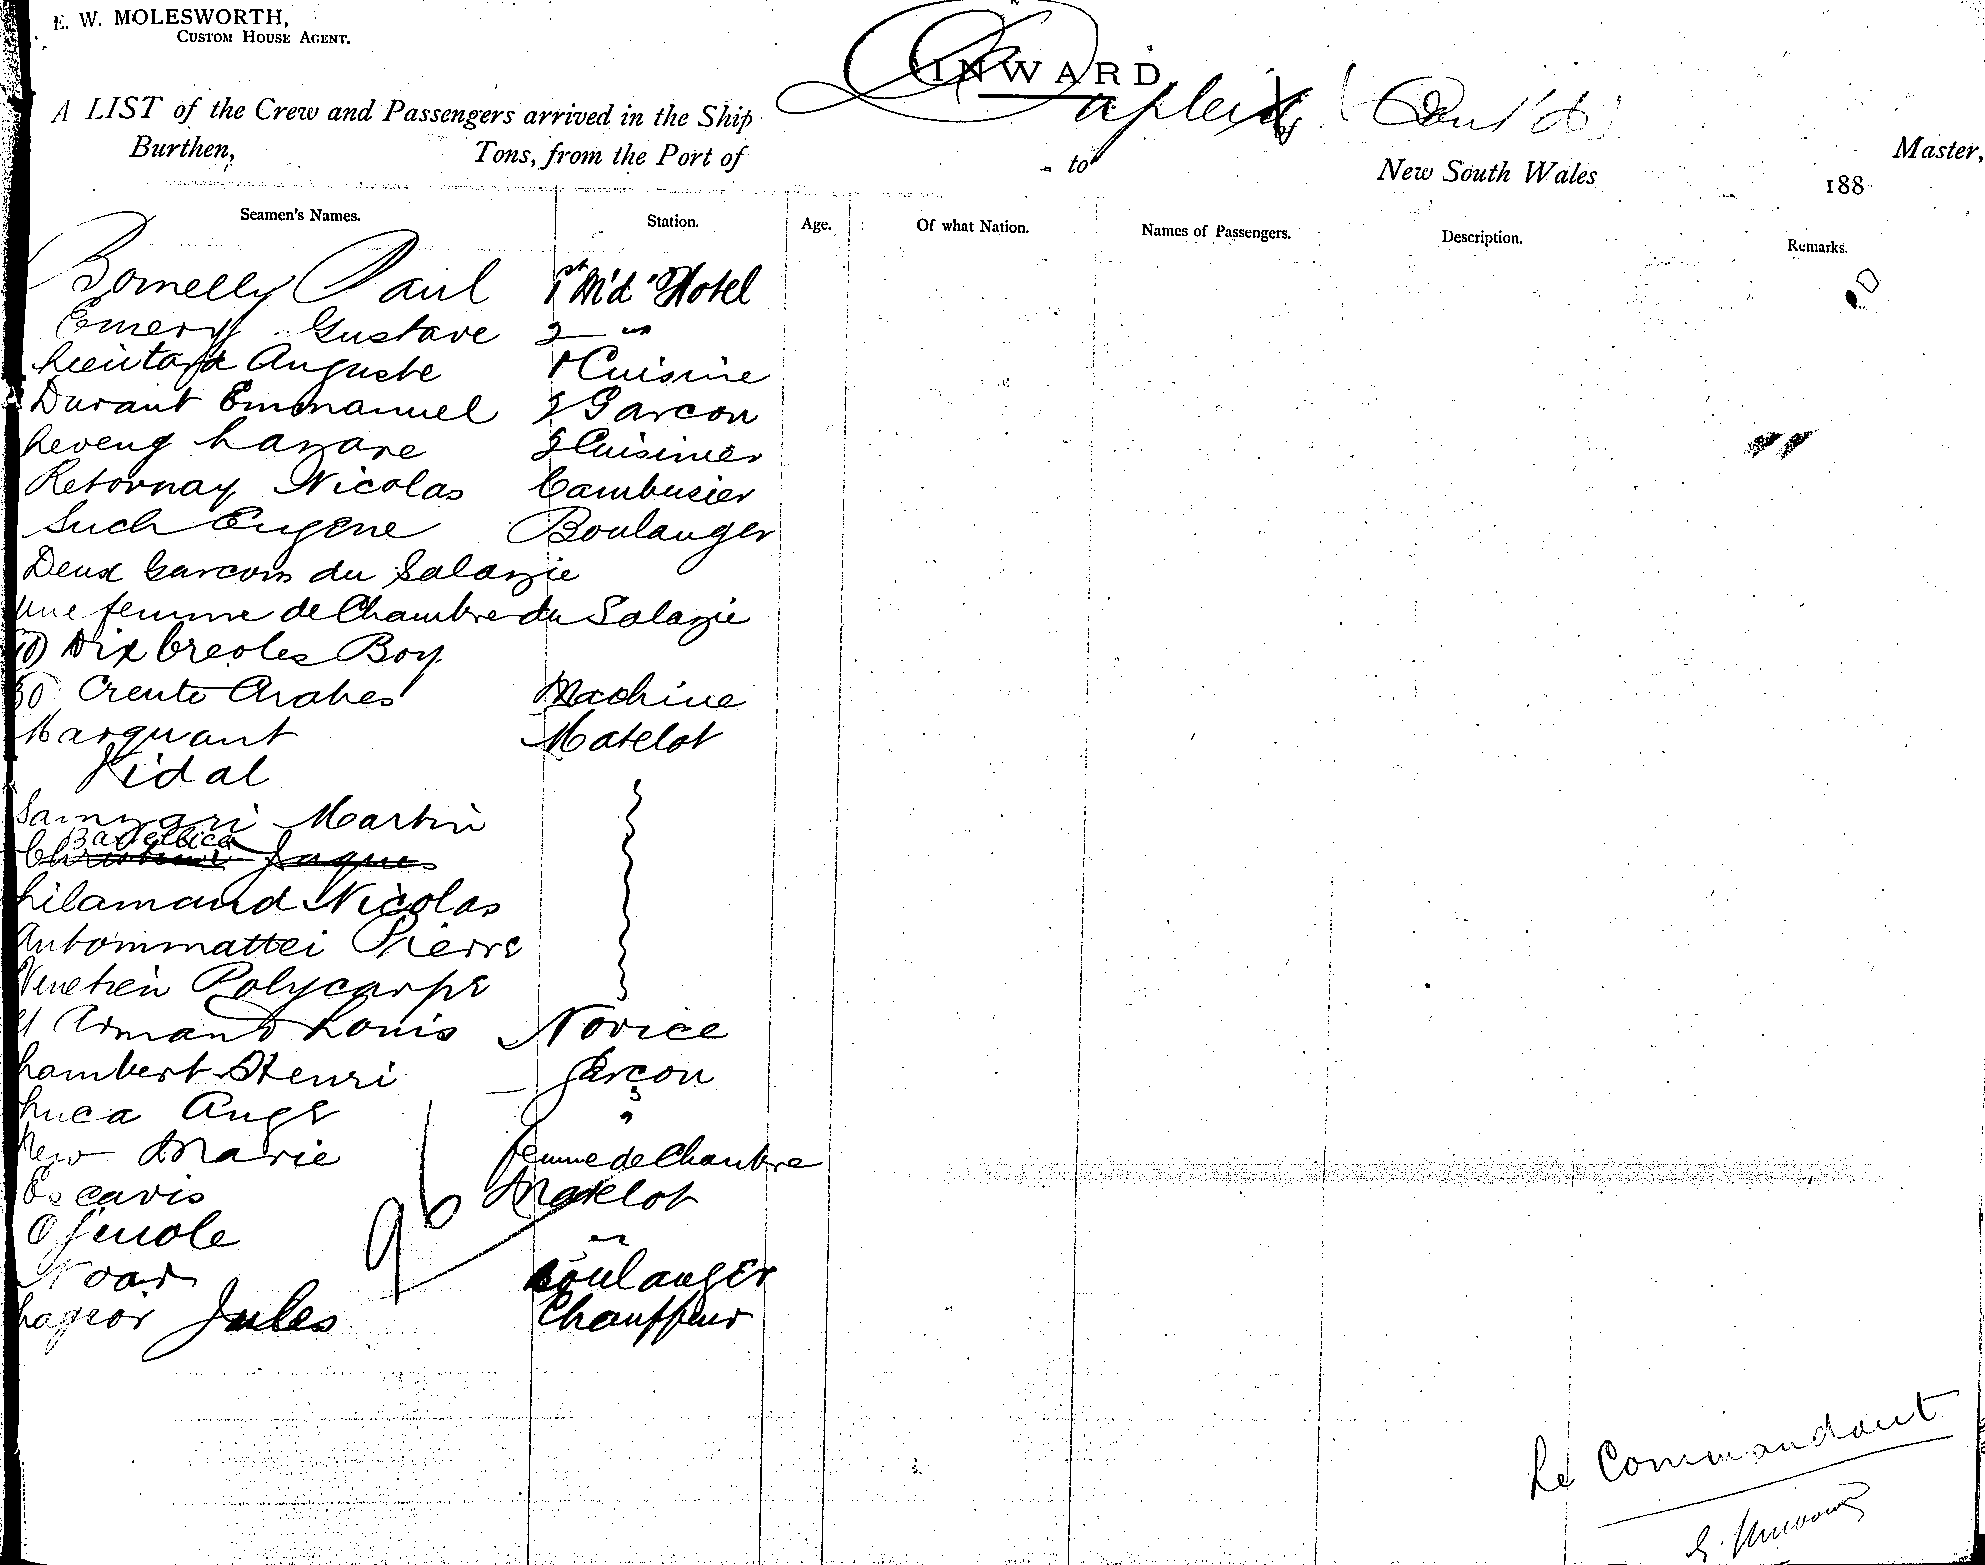 E. W. MOLESWORTH,
CUSTOM HOUSE AGENT.
INWARD
Dupleix (Cont'd)
A LIST of the Crew and Passengers arrived in the Ship
Master,
Burthen, Tons, from the Port of to New South Wales 188
Seamen's Names. Station. Age. Of what Nation. Names of Passengers. Description. Remarks.
Bonelly Paul 1st M'd Hotel
Emery Gustave 2 "
Auguste 1 Cuisine
Durant Emmanuel 2 Garcon
Lazare 2 Cuisinier
Retornay Nicolas Cambusier
Such Eugene Boulanger
Deux Garcons du Salazie
Une femme de Chambre du Salazie
10) Dix Creoles Boy
30 Trente Arabes Machine
Marquant Matelot
Vidal
Martin
Jaques
Lilamand Nicolas
Antommattei Pierre
Venetien Polycarpe
Armand Louis Novice
Lambert Henri Garçon
Luca Ange "
Marie femme de Chambre
Escavis Matelot
96
Boulanger
Jules Chauffeur
Le Commandant